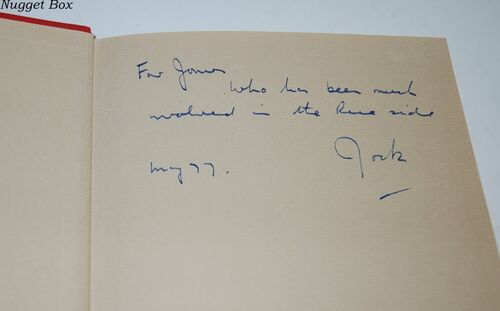 Nugget Box
For James
who has been much
involved in the Rive side
May 77.
Jock